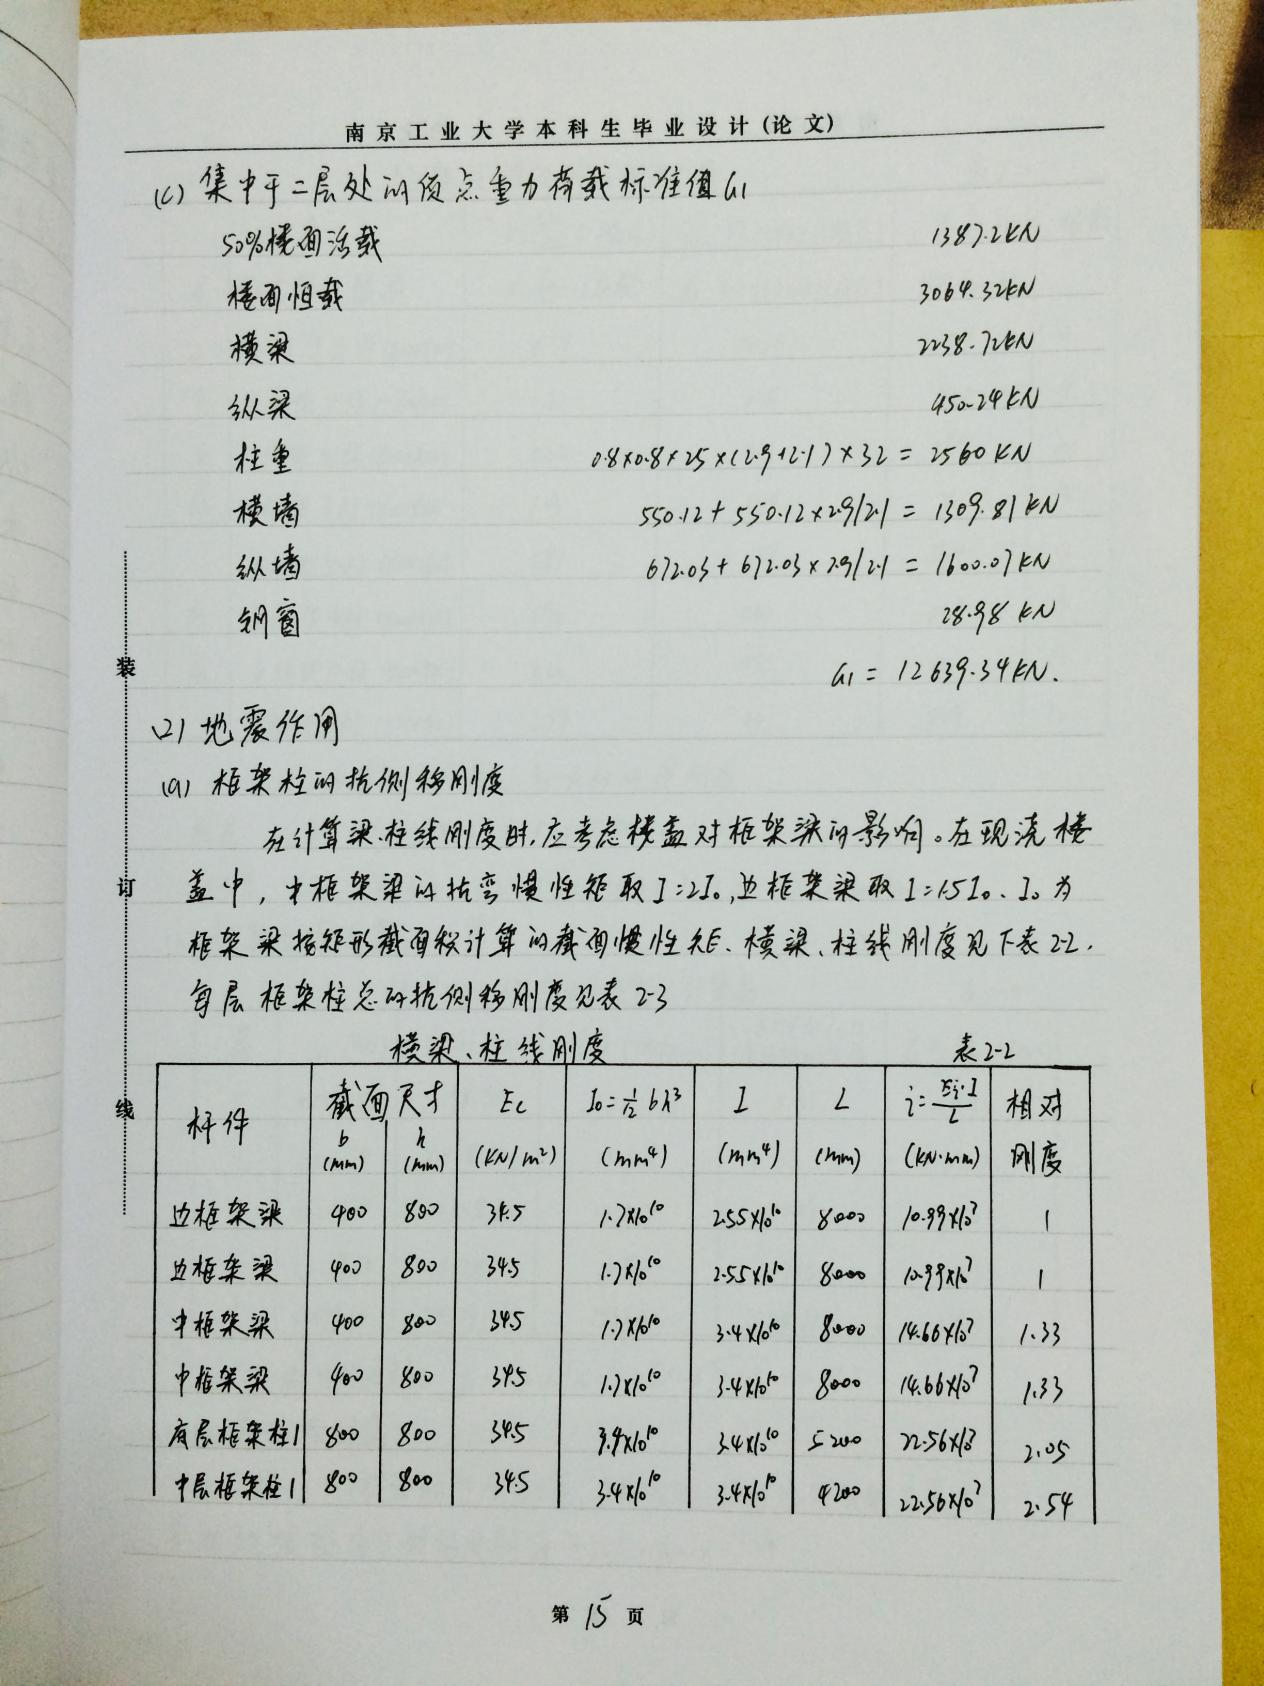 南京工业大学本科生毕业设计(论文)
(c) 集中于二层处的质点重力荷载标准值G1
50%楼面活载 1387.2KN
楼面恒载 3064.32KN
横梁 2238.72KN
纵梁 450.24KN
柱重 0.8×0.8×25×(2.9+2.1)×32=2560KN
横墙 550.12+550.12×2.9/2.1=1309.81KN
纵墙 672.03+672.03×2.9/2.1=1600.07KN
钢窗 28.98KN
G1=12639.34KN.
(2) 地震作用
(a) 框架柱的抗侧移刚度
在计算梁、柱线刚度时,应考虑楼盖对框架梁的影响。在现浇楼
盖中,中框架梁的抗弯惯性矩取I=2I0,边框架梁取I=1.5I0、I0为
框架梁按矩形截面积计算的截面惯性矩、横梁、柱线刚度见下表2-2.
每层框架柱总的抗侧移刚度见表2-3
横梁、柱线刚度 表2-2
杆件 截面尺寸 Ec I0=1/12 bh³ I L i=Ec·I/L 相对
b h
(mm) (mm) (KN/m²) (mm⁴) (mm⁴) (mm) (KN·mm) 刚度
边框架梁 400 800 34.5 1.7×10¹⁰ 2.55×10¹⁰ 8000 10.99×10⁷ 1
边框架梁 400 800 34.5 1.7×10¹⁰ 2.55×10¹⁰ 8000 10.99×10⁷ 1
中框架梁 400 800 34.5 1.7×10¹⁰ 3.4×10¹⁰ 8000 14.66×10⁷ 1.33
中框架梁 400 800 34.5 1.7×10¹⁰ 3.4×10¹⁰ 8000 14.66×10⁷ 1.33
底层框架柱1 800 800 34.5 3.4×10¹⁰ 3.4×10¹⁰ 5200 22.56×10⁷ 2.05
中层框架柱1 800 800 34.5 3.4×10¹⁰ 3.4×10¹⁰ 4200 22.56×10⁷ 2.54
装
订
线
第 15 页